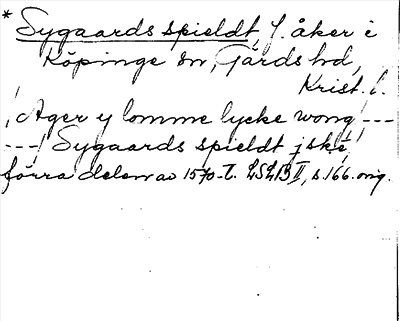 * Sygaards spieldt, f. åker i
Köpinge sn, Gärds hd,
Krist. l.
! Ager y lomme lycke wong ! ---
---! Sygaards spieldt j skē!
förra delen av 1570-t. LSLB II, s. 166. orig.